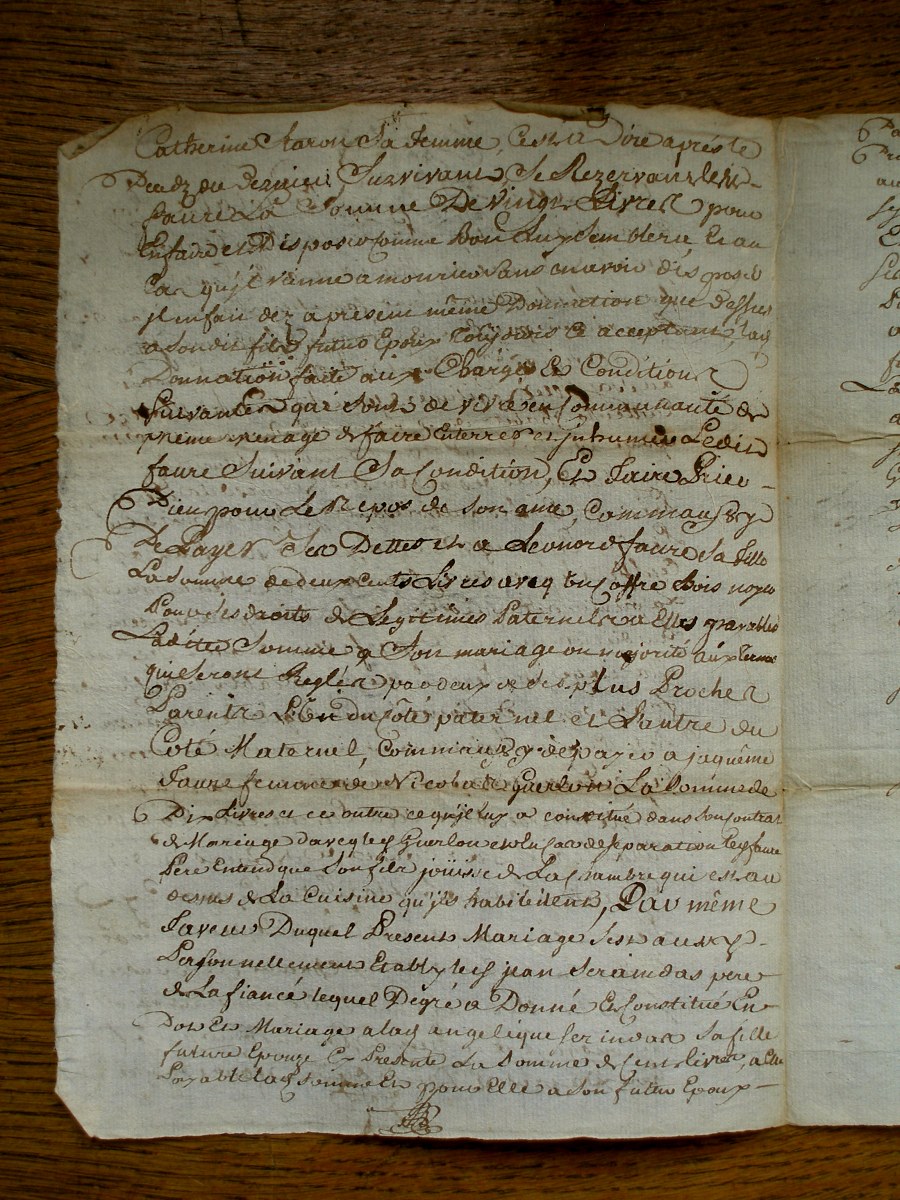 Catherine Faron Sa femme, C'est a Dire apres le
Decedz du Dernier Survivant Se Rezervant ledit
faure La Somme De vingt Livres pour
En faire et Disposer Comme Bon Luy Semblera, Et au
Cas qu'jl vienne a mourir Sans en avoir disposé
jl en fait dez apresent même Donnation que dessus
a Sondit fils futur Epoux toujours Ce acceptant lad
Donnation faite aux Charges Et Conditions
Suivantes qui Sont de vivre en Communauté de
même menage de faire Enterrer et jnhumer Ledit
faure Suivant Sa Condition, Et faire Prier
Dieu pour Le Repos de Son ame, Comm'aussy
De Payer Ses Dettes et a Leonarde faure Sa fille
La Somme de deux Cents Livres avec un Coffre Bois noyer
Pour Ses droits de Legitimes Paternelle a Elles payables
Ladite Somme a Son mariage ou majorité aux termes
qui Seront Reglés par deux de Ses plus Proches
Parents L'un du Côté paternel et L'autre du
Coté Maternel, Comm'aussy de payer a jaquême
faure femme de Nicolas Guerlou La Somme de
Dix Livres et ce outre ce qu'jl luy a constitué dans Son Contrat
de Mariage d'avec led Guerlou et au Cas de Separation led faure
Pere Entend que Son fils jouisse de La chambre qui est au
dessus de La Cuisine qu'jls habitent, Par même
faveur Duquel Present Mariage S'est aussy
Personnellement Etably led jean Seraindas pere
de La fiancé lequel De gré a Donné Et Constitué En
Dot Et Mariage a lad angelique Serindas Sa fille
future Epouze Cy Presente La Somme de Cent livres, a Elle
Payable lad Somme Et pour Elle a Son futur Epoux